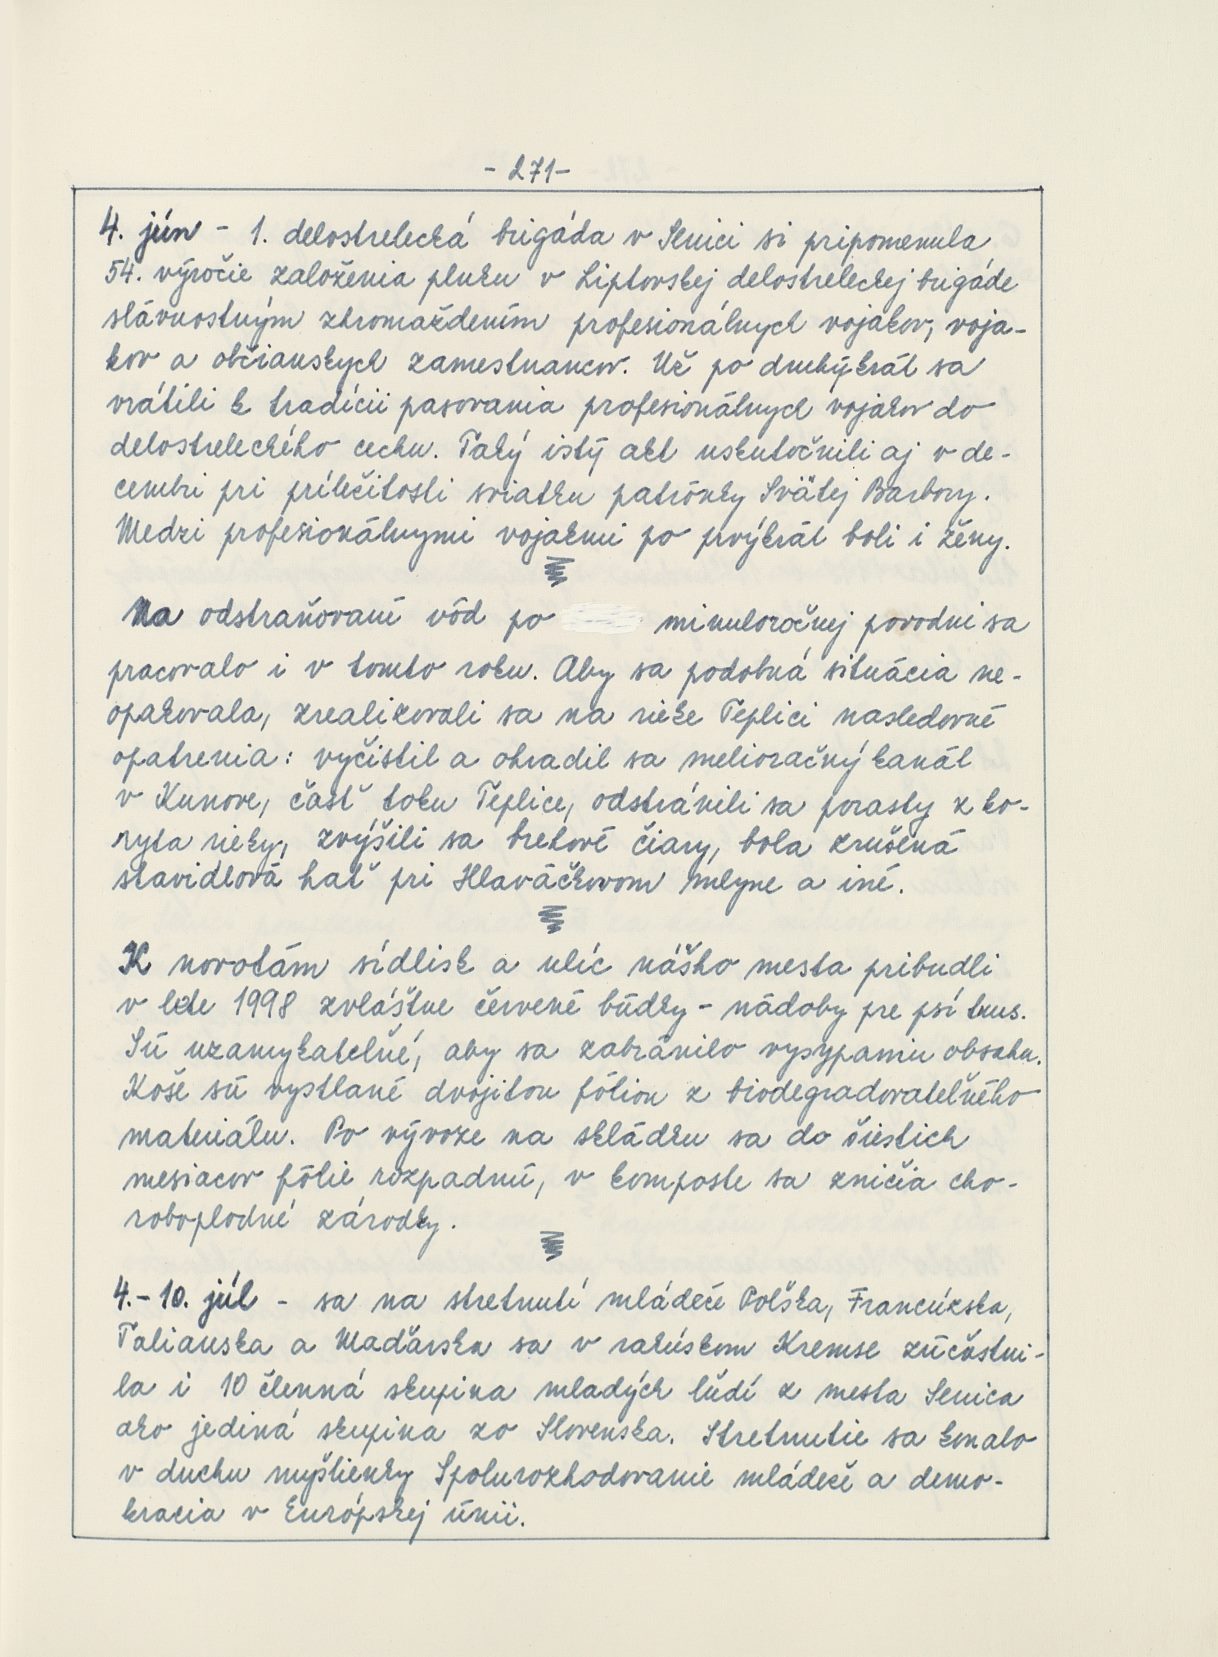 - 271 -
4. jún - 1. delostrelecká brigáda v Senici si pripomenula
54. výročie založenia pluku v Liptovskej delostreleckej brigáde
slávnostným zhromaždením profesionálnych vojakov, voja-
kov a občianskych zamestnancov. Už po druhýkrát sa
vrátili k tradícii pasovania profesionálnych vojakov do
delostreleckého cechu. Taký istý akt uskutočnili aj v de-
cembri pri príležitosti sviatku patrónky Svätej Barbory.
Medzi profesionálnymi vojakmi po prvýkrát boli i ženy.
Na odstraňovaní vôd po minuloročnej povodni sa
pracovalo i v tomto roku. Aby sa podobná situácia ne-
opakovala, zrealizovali sa na rieke Teplici nasledovné
opatrenia: vyčistil a ohradil sa melioračný kanál
v Kunove, časť toku Teplice, odstránili sa porasty z ko-
ryta rieky, zvýšili sa brehové čiary, bola zrušená
stavidlová hať pri Hlaváčkovom mlyne a iné.
K novotám sídlisk a ulíc nášho mesta pribudli
v lete 1998 zvláštne červené búdky - nádoby pre psí trus.
Sú uzamykateľné, aby sa zabránilo vysypaniu obsahu.
Koše sú vystlané dvojitou fóliou z biodegradovateľného
materiálu. Po vývoze na skládku sa do šiestich
mesiacov fólie rozpadnú, v komposte sa zničia cho-
roboplodné zárodky.
4.- 10. júl - sa na stretnutí mládeže Poľska, Francúzska,
Talianska a Maďarska sa v rakúskom Kremse zúčastni-
la i 10 členná skupina mladých ľudí z mesta Senica
ako jediná skupina zo Slovenska. Stretnutie sa konalo
v duchu myšlienky Spolurozhodovanie mládeže a demo-
kracia v Európskej únii.